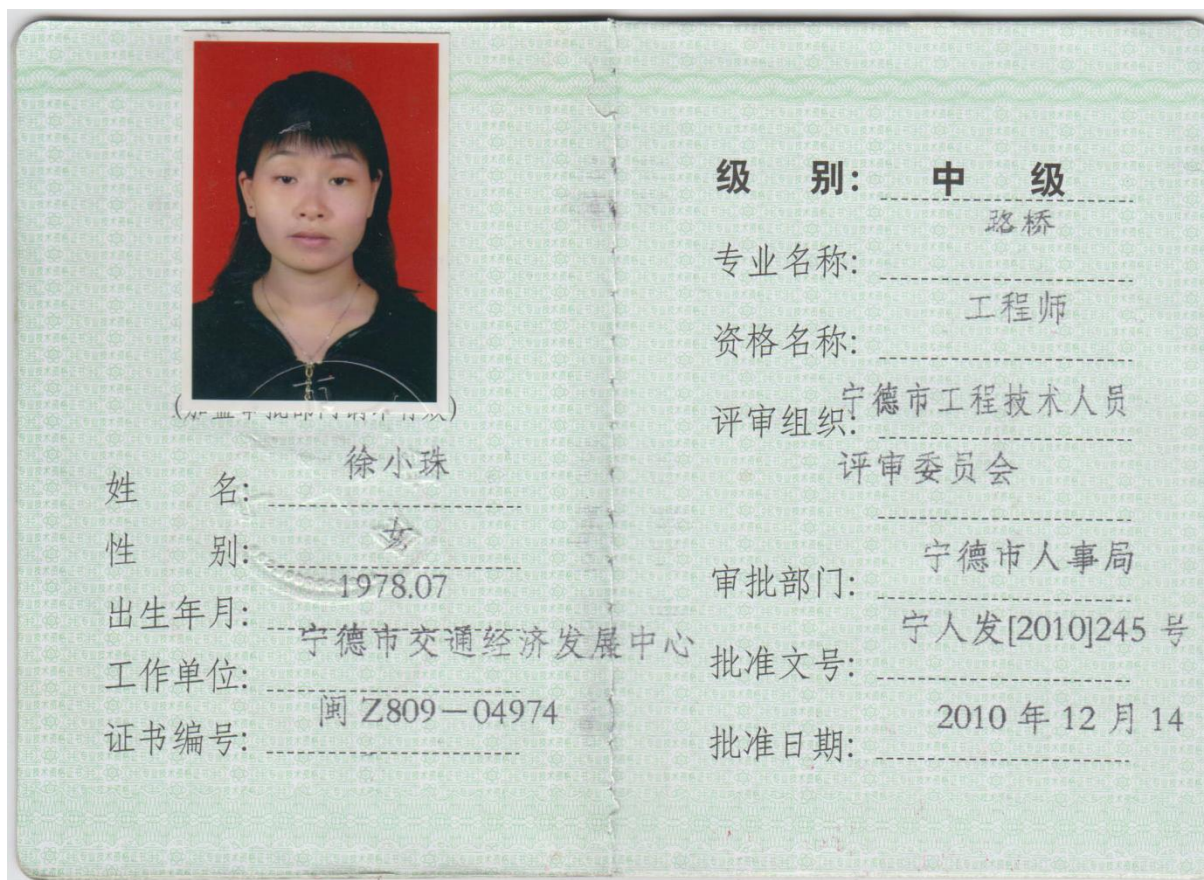 (加盖审批部门钢印有效)
姓 名: 徐小珠
性 别: 女
出生年月: 1978.07
工作单位: 宁德市交通经济发展中心
证书编号: 闽 Z809－04974
级 别: 中 级
专业名称: 路桥
资格名称: 工程师
评审组织: 宁德市工程技术人员
评审委员会
审批部门: 宁德市人事局
批准文号: 宁人发[2010]245 号
批准日期: 2010 年 12 月 14